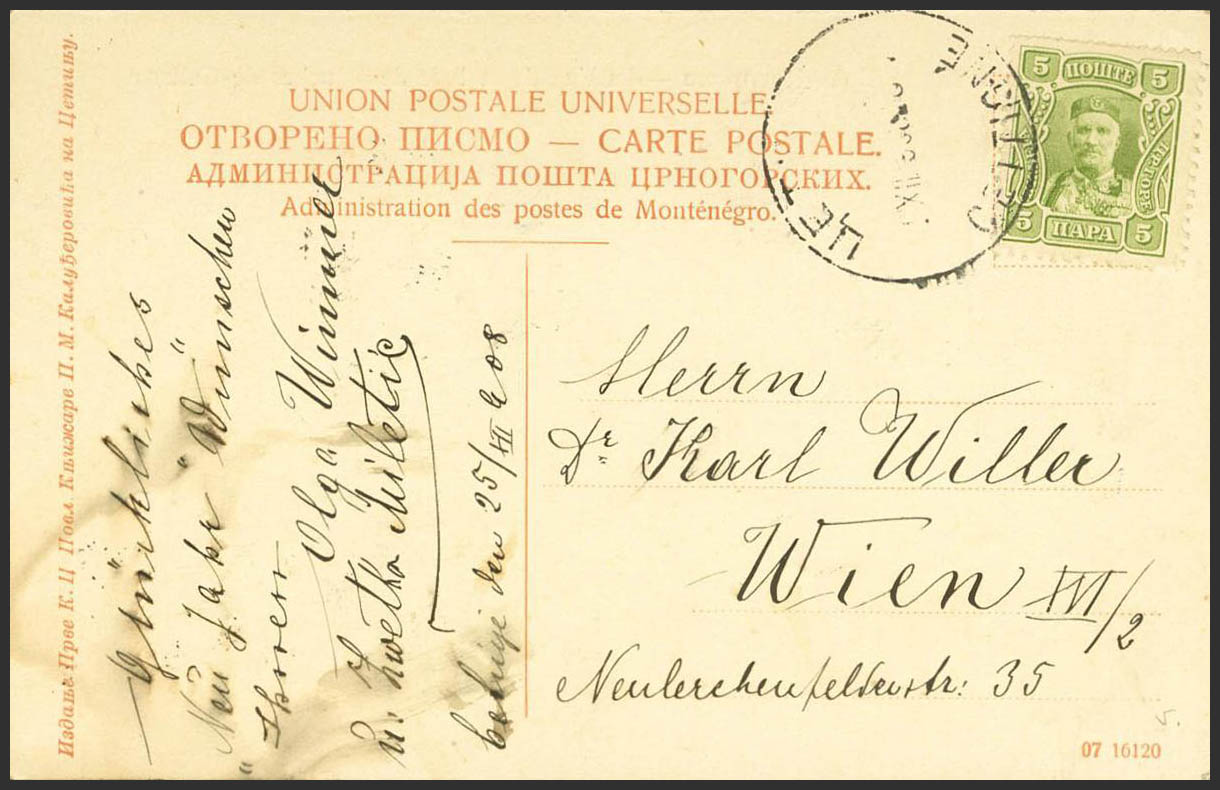 UNION POSTALE UNIVERSELLE
ОТВОРЕНО ПИСМО — CARTE POSTALE.
АДМИНИСТРАЦИЈА ПОШТА ЦРНОГОРСКИХ.
Administration des postes de Monténégro.
5 ПОШТЕ 5
5 ПАРА 5
ЦЕТ
CETTIGNE
Издање Прве К. Ц Повл. Књижаре П. М. Калуђеровића на Цетињу.
Glückliches
Neu Jahr Wünschen
Olga Wimmer
u. Zwetka Miletić
den 25/XII 908
Herrn
Dr Karl Willer
Wien XVI/2
Neulerchenfelderstr: 35
07 16120